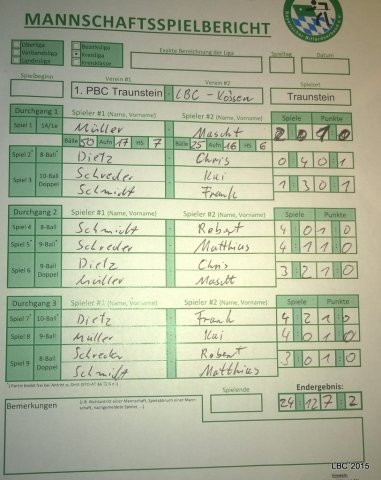 MANNSCHAFTSSPIELBERICHT
Oberliga Bezirksliga
Verbandsliga Kreisliga
Landesliga Kreisklasse
Exakte Bezeichnung der Liga Spieltag Datum
Spielbeginn Verein #1 Verein #2 Spielort
1. PBC Traunstein : LBC - Vössen Traunstein
Durchgang 1 Spieler #1 (Name, Vorname) Spieler #2 (Name, Vorname) Spiele Punkte
Spiel 1 14/1e Müller Mascht 2 : 0 1 : 0
Bälle 50 Aufn 17 HS 7 Bälle 25 Aufn 16 HS 6
Spiel 2* 8-Ball* Dietz Chris 0 : 4 0 : 1
Spiel 3 10-Ball Doppel Schreder Kai 1 : 3 0 : 1
Schmidt Frank
Durchgang 2 Spieler #1 (Name, Vorname) Spieler #2 (Name, Vorname) Spiele Punkte
Spiel 4 8-Ball Schmidt Robert 4 : 0 1 : 0
Spiel 5* 9-Ball* Schreder Matthias 4 : 1 1 : 0
Spiel 6 9-Ball Doppel Dietz Chris 3 : 2 1 : 0
Müller Mascht
Durchgang 3 Spieler #1 (Name, Vorname) Spieler #2 (Name, Vorname) Spiele Punkte
Spiel 7* 10-Ball* Dietz Frank 4 : 2 1 : 0
Spiel 8 9-Ball Müller Kai 4 : 0 1 : 0
Spiel 9 8-Ball Doppel Schreder Robert 3 : 0 1 : 0
Schmidt Matthias
Spielende Endergebnis:
Bemerkungen 24 : 12 7 : 2
LBC 2015